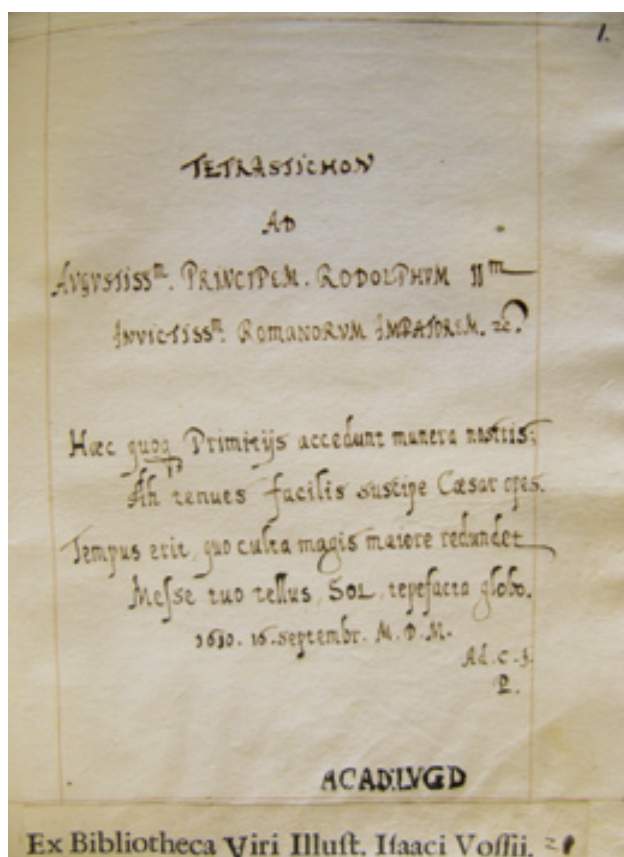 1.
TETRASTICHON
AD
AUGUSTISSᵐ. PRINCIPEM. RODOLPHUM IIᵐ
INVICTISSᵐ. ROMANORVM IMPATOREM. &c.
Hæc quoq Primitijs accedunt munera nostris;
Ah tenues facilis suscipe Cæsar opes.
Tempus erit, quo culta magis maiore redundet
Meſse tuo tellus, SOL, tepefacta globo.
1610. 16. Septembr. M. D. M.
Ad. C. S.
P.
ACAD. LVGD
Ex Bibliotheca Viri Illuſt. Iſaaci Voſſii.